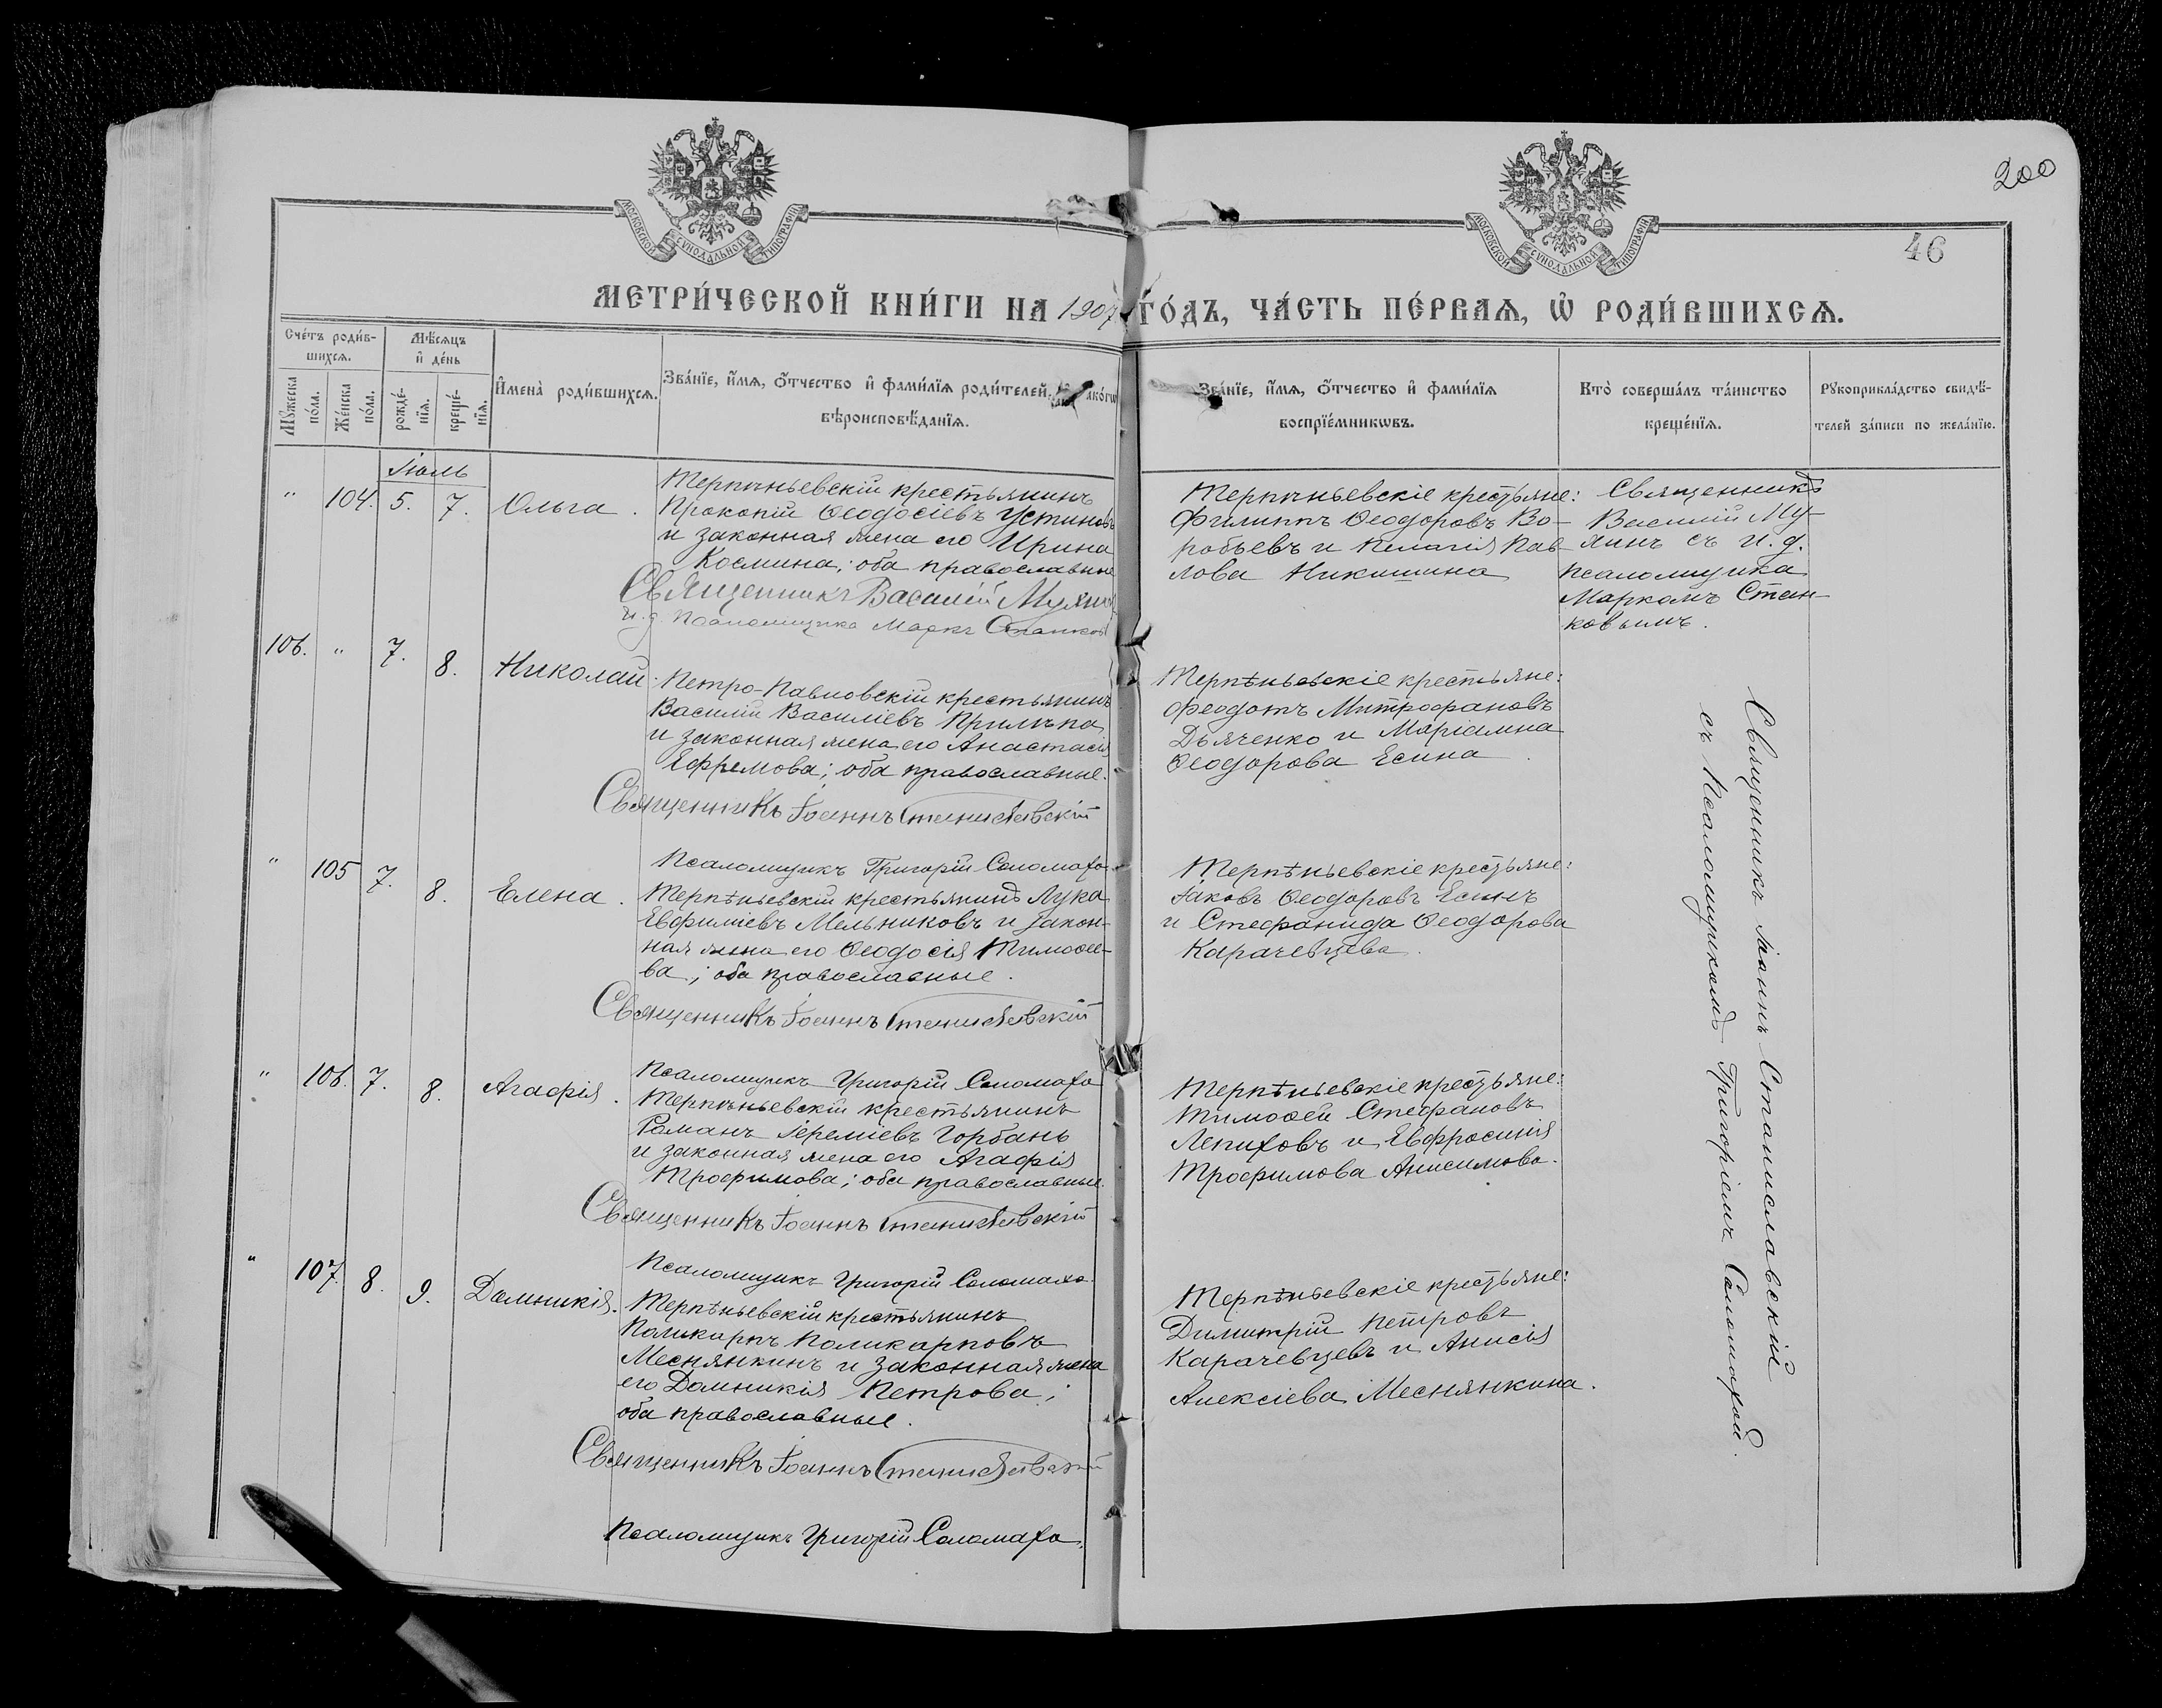 200
46
МОСКОВСКОЙ СѴНОДАЛЬНОЙ ТИПОГРАФІИ
МОСКОВСКОЙ СѴНОДАЛЬНОЙ ТИПОГРАФІИ
МЕТРИ́ЧЕСКОЙ КНИ́ГИ НА 1907 ГО́ДЪ, ЧА́СТЬ ПЕ́РВАѦ, Ѡ РОДИ́ВШИХСѦ.
Сче́тъ роди́в-
шихсѧ.
Мꙋ́жеска по́ла.
Же́нска по́ла.
Мѣ́сѧцъ
и де́нь
рожде́-
нїѧ.
креще́-
нїѧ.
И҆мена̀ роди́вшихсѧ.
Зва́нїе, и҆́мѧ, ѻ҆́тчество и҆ фами́лїѧ роди́телей, и҆ како́гѡ
вѣроисповѣ́данїѧ.
Зва́нїе, и҆́мѧ, ѻ҆́тчество и҆ фами́лїѧ
воспрїе́мникѡвъ.
Кто̀ соверша́лъ та́инство
креще́нїѧ.
Рꙋкоприкла́дство свидѣ́-
телей за́писи по жела́нїю.
Іюль
" 104. 5. 7. Ольга.
Терпѣньевскій крестьянинъ
Прокопій Ѳеодосіевъ Устиновъ
и законная жена его Ирина
Космина; оба православные
Священникъ Василій Мухинъ
и. д. Псаломщика Маркъ Станковъ
Терпѣньевскіе крестьяне:
Филиппъ Ѳеодоровъ Во-
робьевъ и Пелагія Пав-
лова Никишина
Священникъ
Василій Му-
хинъ съ и. д.
псаломщика
Маркомъ Стан-
ковымъ.
106. " 7. 8. Николай.
Петро-Павловскій крестьянинъ
Василій Василіевъ Прилѣпа
и законная жена его Анастасія
Ефремова; оба православные.
Священникъ Іоаннъ Станиславскій
Псаломщикъ Григорій Соломаха
Терпѣньевскіе крестьяне:
Феодотъ Митрофановъ
Дьяченко и Маріамна
Ѳеодорова Есина.
" 105 7. 8. Елена.
Терпѣньевскій крестьянинъ Лука
Евфиміевъ Мельниковъ и закон-
ная жена его Ѳеодосія Тимоѳее-
ва; оба православные.
Священникъ Іоаннъ Станиславскій
Псаломщикъ Григорій Соломаха
Терпѣньевскіе крестьяне:
Іаковъ Ѳеодоровъ Есинъ
и Стефанида Ѳеодорова
Карачевцева.
" 106. 7. 8. Агафія.
Терпѣньевскій крестьянинъ
Романъ Іереміевъ Горбань
и законная жена его Агафія
Трофимова; оба православные.
Священникъ Іоаннъ Станиславскій
Псаломщикъ Григорій Соломаха.
Терпѣньевскіе крестьяне:
Тимоѳей Стефановъ
Лепиховъ и Евфросинія
Трофимова Анисимова.
" 107. 8. 9. Домникія.
Терпѣньевскій крестьянинъ
Поликарпъ Поликарповъ
Меснянкинъ и законная жена
его Домникія Петрова;
оба православные.
Священникъ Іоаннъ Станиславскій
Псаломщикъ Григорій Соломаха.
Терпѣньевскіе крестьяне:
Димитрій Петровъ
Карачевцевъ и Анисія
Алексіева Меснянкина.
Священникъ Іоаннъ Станиславскій
съ Псаломщикомъ Григоріемъ Соломахой.